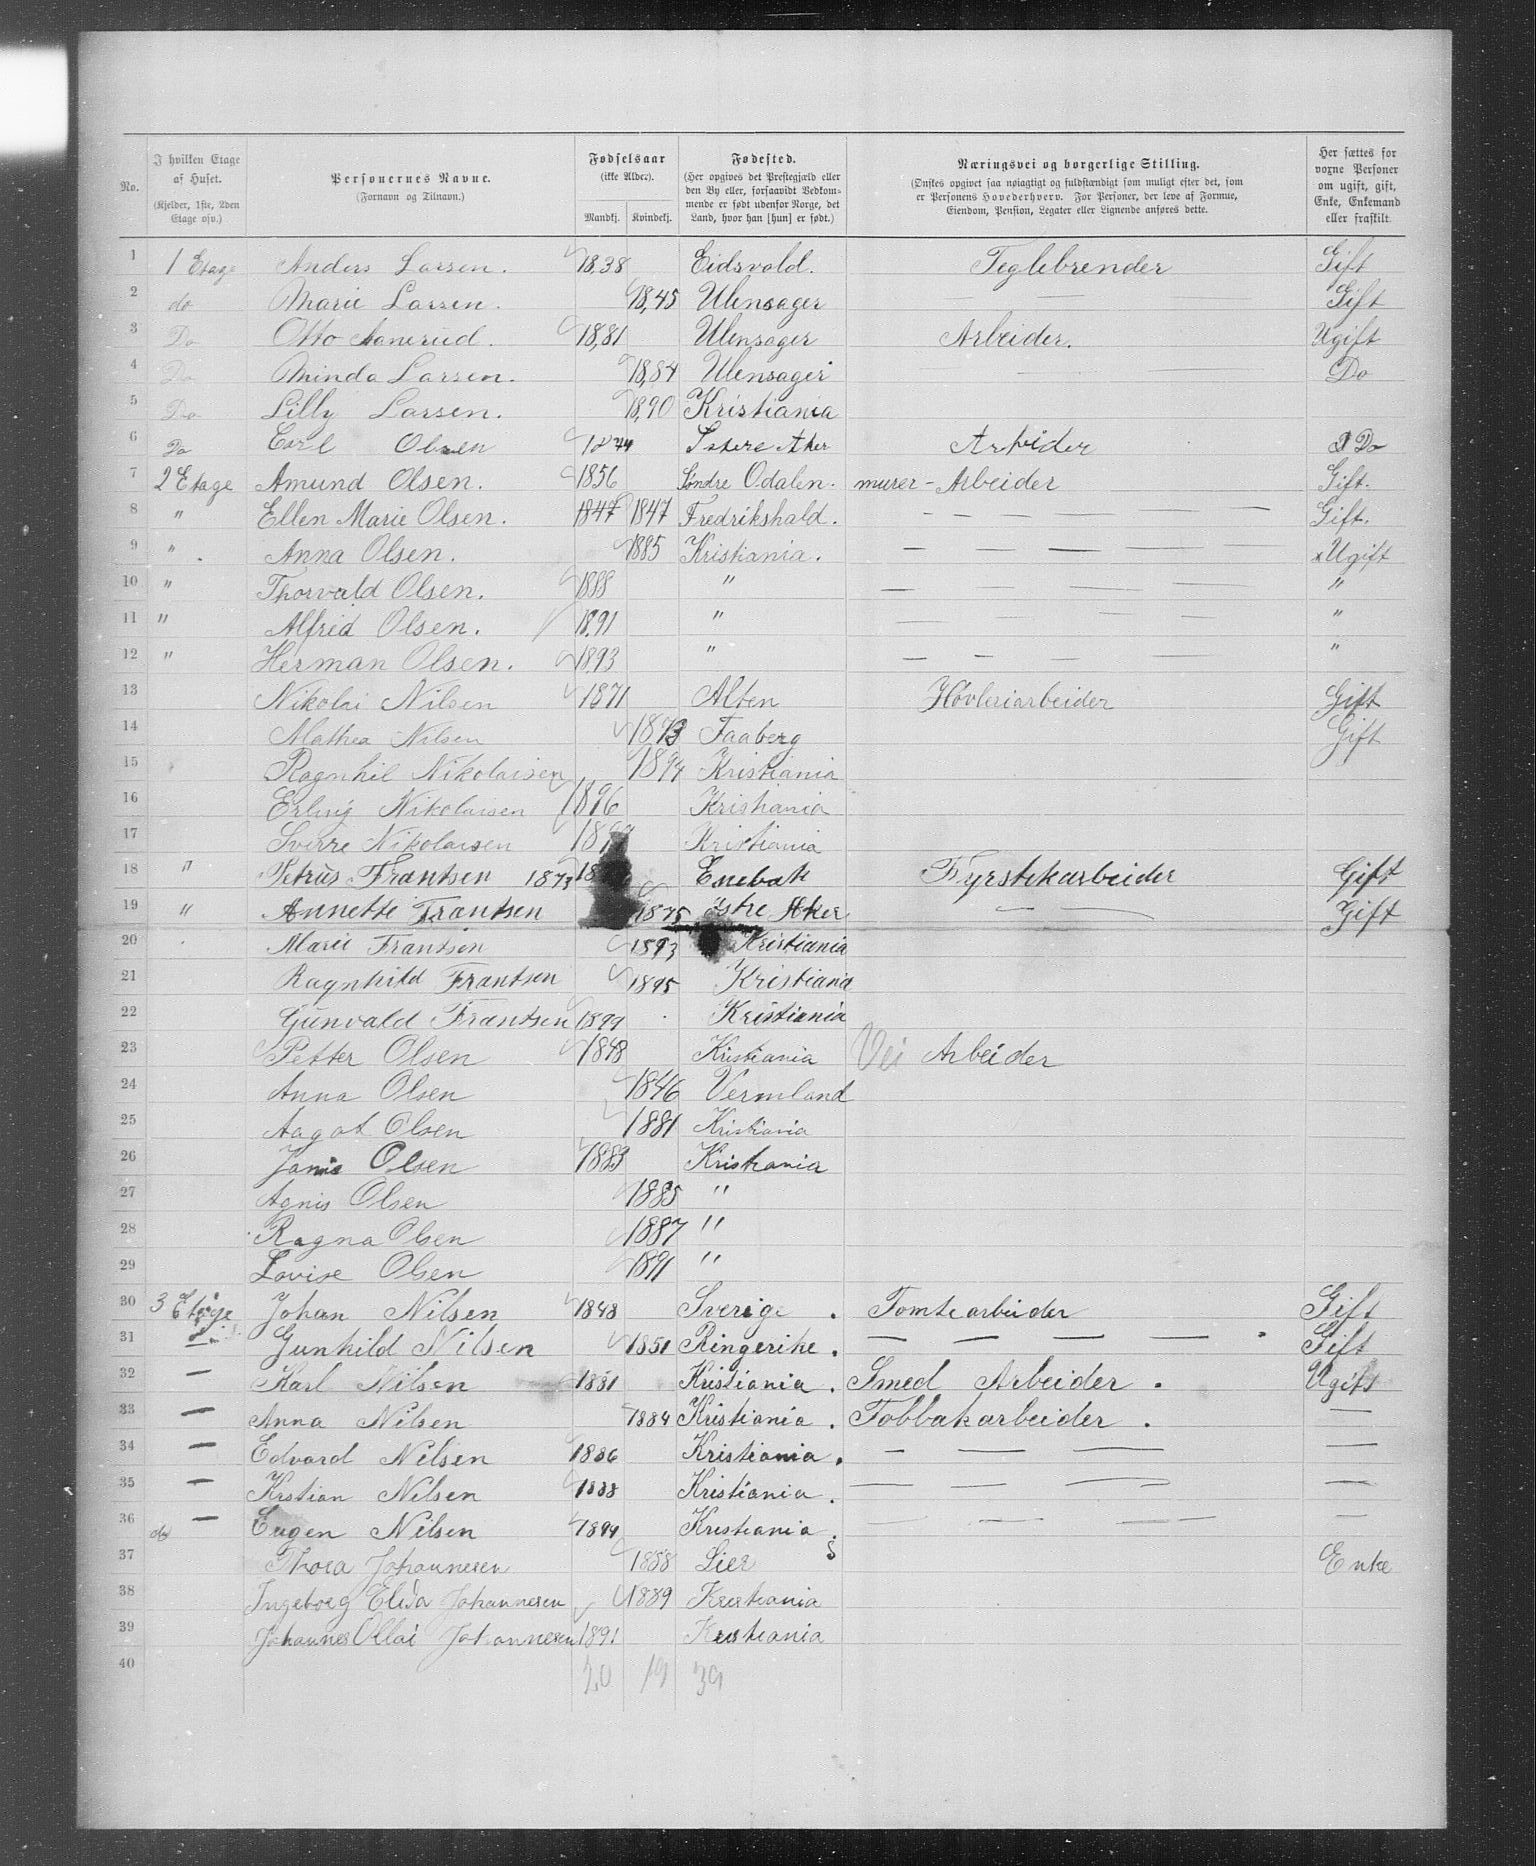 No.	I hvilken Etage af Huset. (Kjelder, 1ste, 2den Etage osv.)	Personernes Navne. (Fornavn og Tilnavn.)	Fødselsaar (ikke Alder). Mandkj. Kvindekj.	Fødested. (Her opgives det Prestegjæld eller den By eller, forsaavidt Vedkommende er født udenfor Norge, det Land, hvor han [hun] er født.)	Næringsvei og borgerlige Stilling. (Ønskes opgivet saa nøiagtigt og fuldstændigt som muligt efter det, som er Personens Hovederhverv. For Personer, der leve af Formue, Eiendom, Pension, Legater eller Lignende anføres dette.)	Her sættes for voxne Personer om ugift, gift, Enke, Enkemand eller fraskilt.
1 1 Etage Anders Larsen. 1838 Eidsvold. Teglebrender Gift
2 do Marie Larsen. 1845 Ulensager — — Gift
3 Do Otto Aanerud. 1881 Ulensager Arbeider. Ugift
4 Do Minda Larsen. 1884 Ulensager — Do
5 Do Lilly Larsen. 1890 Kristiania
6 Do Carl Olsen 1874 Østere Aker Arbeider Do
7 2 Etage Amund Olsen. 1856 Søndre Odalen. murer-Arbeider Gift.
8 " Ellen Marie Olsen. 1847 1847 Fredrikshald. — — — — Gift.
9 " . Anna Olsen. 1885 Kristiania. — — — — x Ugift
10 " Thorvald Olsen. 1888 " — — — — "
11 " Alfred Olsen. 1891 " — — — — "
12 " Herman Olsen. 1893 " — — — — "
13 Nikolai Nilsen 1871 Alten Høvleriarbeider Gift
14 Mathea Nilsen 1873 Faaberg Gift
15 Ragnhil Nikolaisen 1894 Kristiania
16 Erling Nikolaisen 1896 Kristiania
17 Sverre Nikolaisen Kristiania
18 " Petrus Frantsen 1873 Enebak Fyrstikarbeider Gift
19 " Annette Frantsen 1875 Østre Aker — — Gift
20 Marie Frantsen 1893 Kristiania
21 Ragnhild Frantsen 1895 Kristiania
22 Gunvald Frantsen 1899 Kristiania
23 Petter Olsen 1848 Kristiania Vei Arbeider
24 Anna Olsen 1846 Vermland
25 Aagot Olsen 1881 Kristiania
26 Olsen 1883 Kristiania
27 Agnis Olsen 1885 "
28 Ragna Olsen 1887 "
29 Lovise Olsen 1891 "
30 3 Etage Johan Nilsen 1848 Sverige . Tomtearbeider Gift
31 — Gunhild Nilsen 1851 Ringerike. — — — — . Gift
32 — Karl Nilsen 1881 Kristiania. Smed Arbeider . Ugift
33 — Anna Nilsen 1884 Kristiania. Tobbakarbeider . —
34 — Edvard Nilsen 1886 Kristiania. — — — —
35 — Krstian Nilsen 1888 Kristiania. — — — — —
36 do — Eugen Nilsen Kristiania. — — — — —
37 Thora Johannesen 1858 Lier S Enke
38 Ingeborg Elida Johannesen 1889 Kristiania
39 Johannes Ollai Johannesen 1891 Kristiania
40 20 19 39